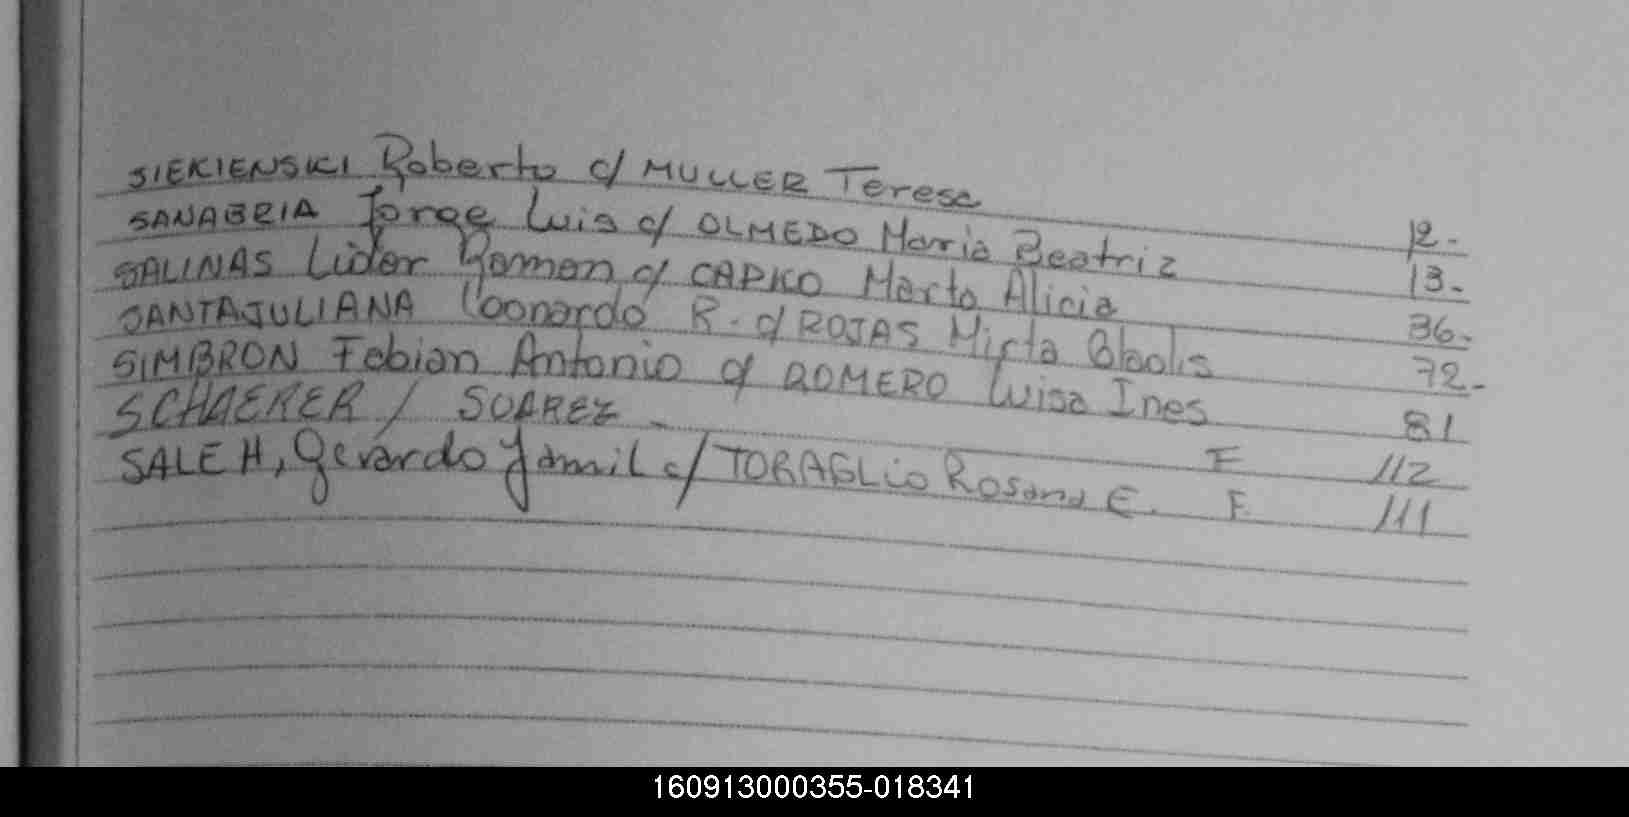 SIEKIENSKI Roberto c/ MULLER Teresa 12-
SANABRIA Jorge Luis c/ OLMEDO Maria Beatriz 13-
SALINAS Lider Ramon c/ CAPKO Marta Alicia 36-
SANTAJULIANA Leonardo R. c/ ROJAS Mirta Gladis 72-
SIMBRON Fabian Antonio c/ ROMERO Luisa Ines 81
SCHAERER / SUAREZ - F 112
SALEH, Gerardo Yamil c/ TORAGLio Rosana E. F. 111
160913000355-018341